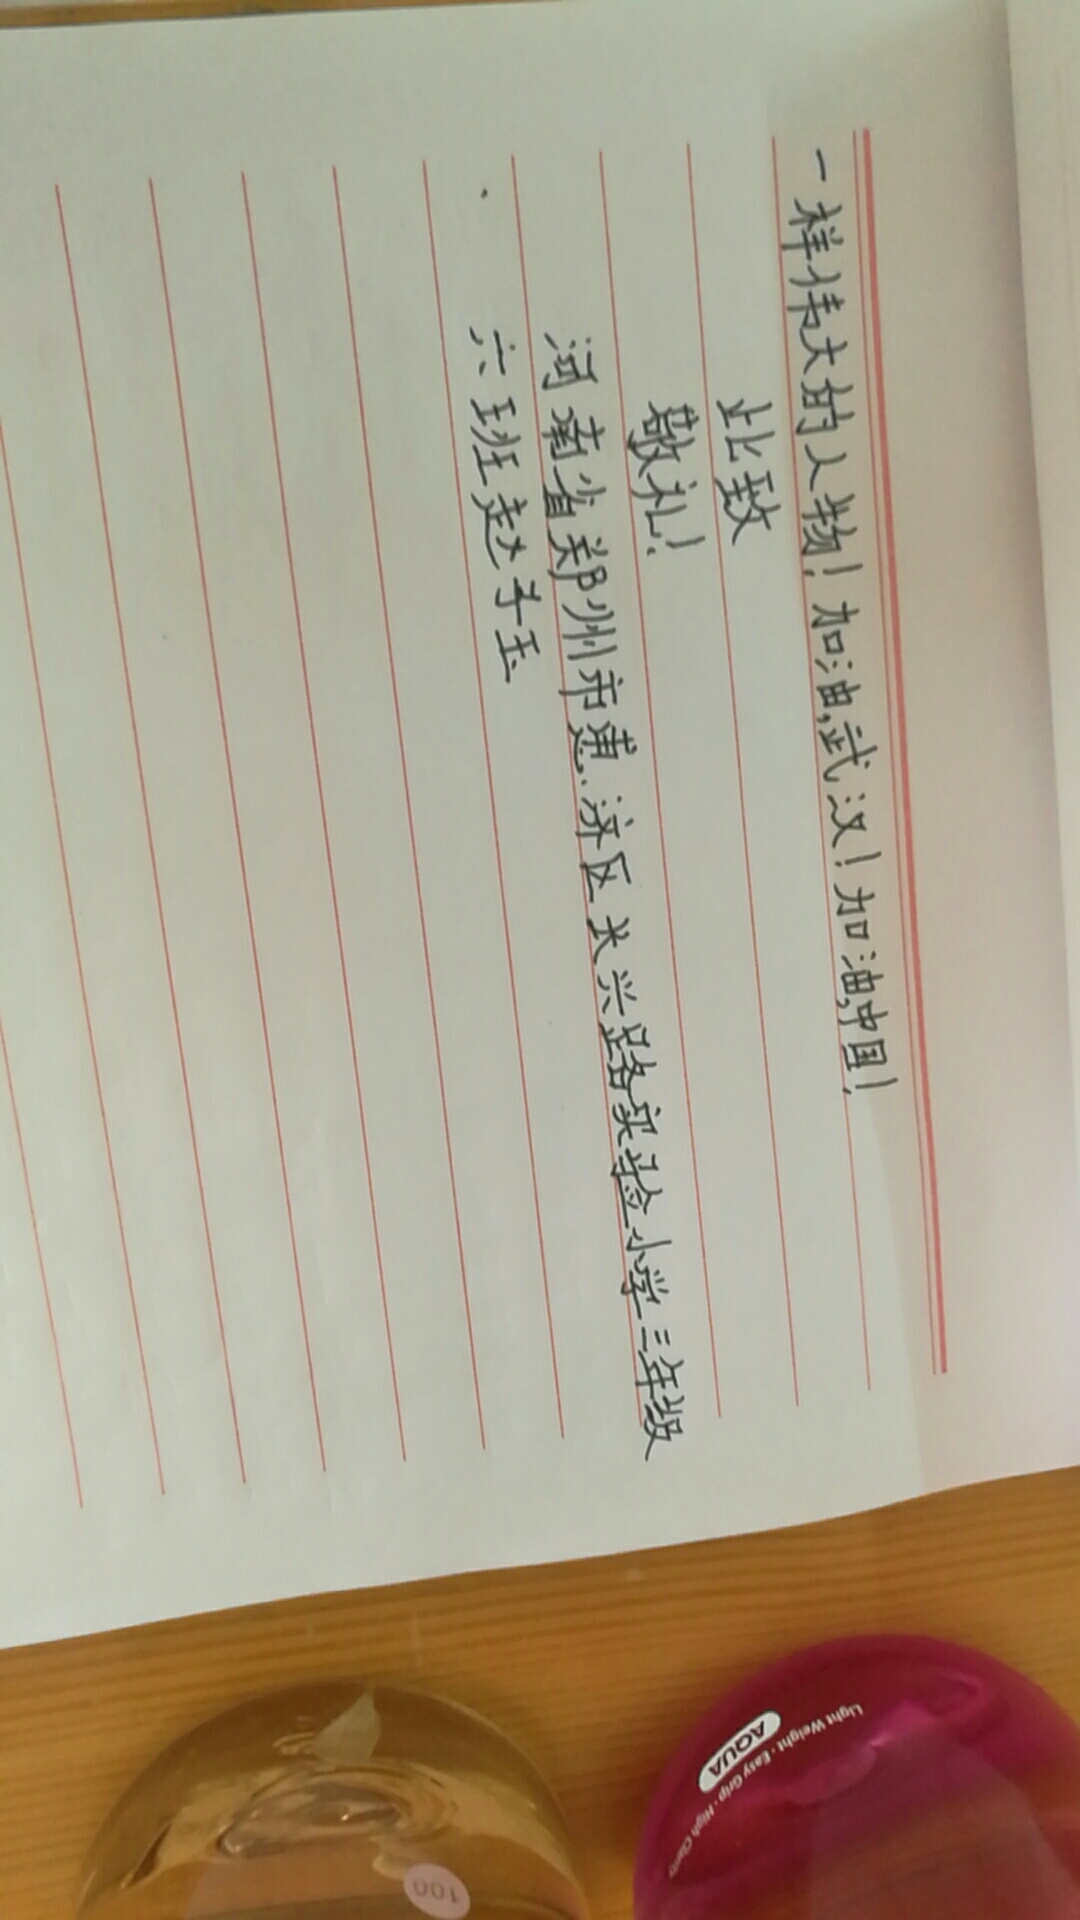 一样伟大的人物！加油,武汉！加油,中国！
此致
敬礼！
河南省郑州市惠济区大兴路实验小学三年级
六班赵子玉
Light Weight · Easy Grip · High Clarity
AQUA
100